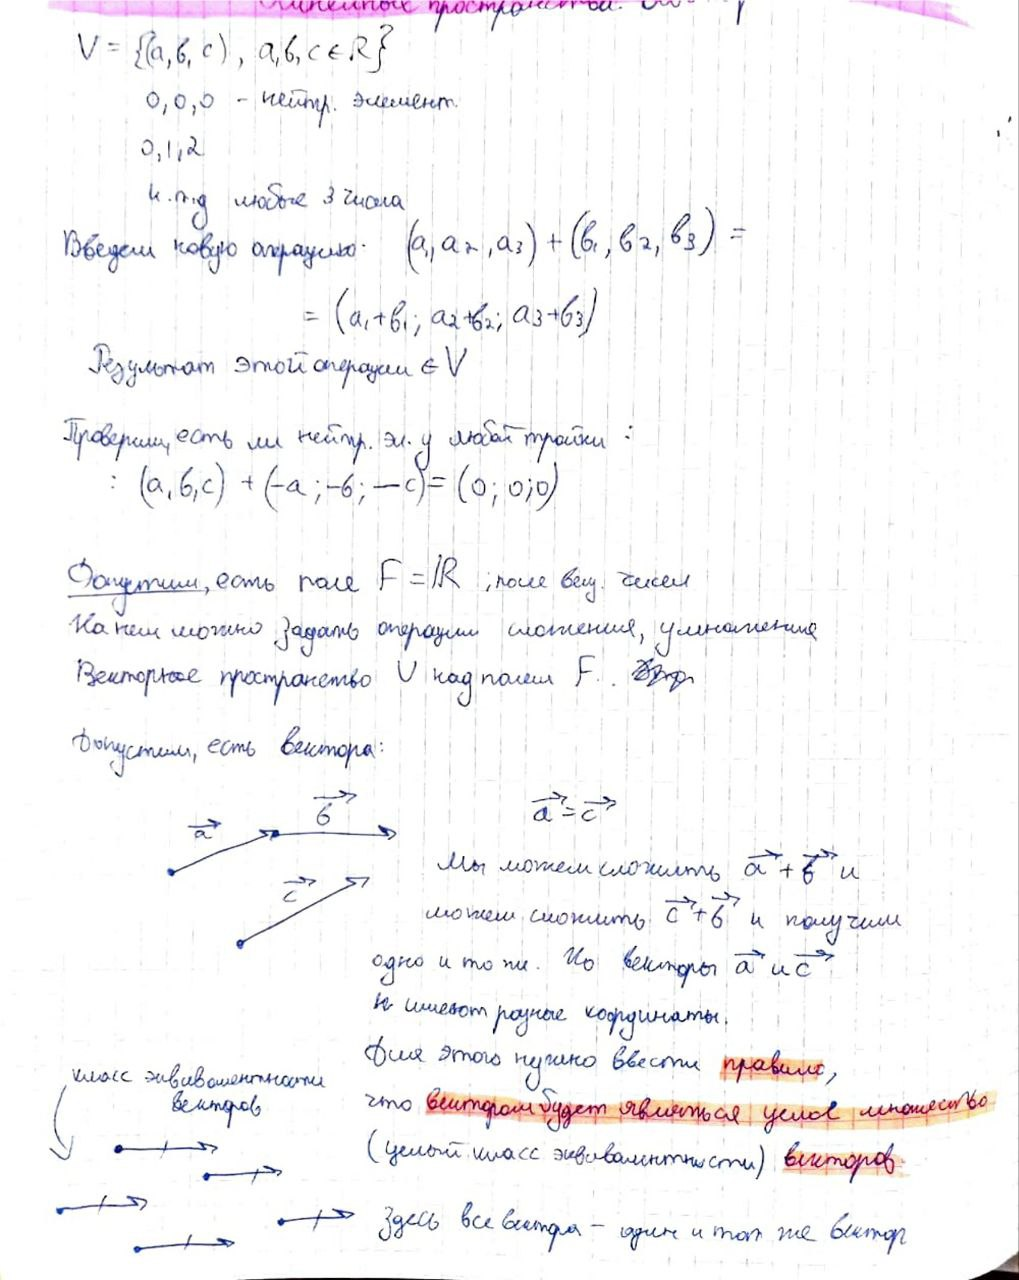 Линейные пространства.
V = {(a, b, c), a, b, c ∈ R}
0, 0, 0 - нейтр. элемент
0, 1, 2
и. т.д любые 3 числа
Введем новую операцию: (a₁, a₂, a₃) + (b₁, b₂, b₃) =
= (a₁+b₁; a₂+b₂; a₃+b₃)
Результат этой операции ∈ V
Проверим, есть ли нейтр. эл. у любой тройки :
: (a, b, c) + (-a; -b; -c) = (0; 0; 0)
Допустим, есть поле F = ℝ ; поле вещ. чисел
На нем можно задать операции сложения, умножения
Векторное пространство V над полем F.
Допустим, есть вектора:
a⃗
b⃗
a⃗ = c⃗
c⃗
Мы можем сложить a⃗ + b⃗ и
можем сложить c⃗ + b⃗ и получим
одно и то же. Но векторы a⃗ и c⃗
имеют разные координаты.
Для этого нужно ввести правило,
что вектором будет являться целое множество
(целый класс эквивалентности) векторов
класс эквивалентности
векторов
Здесь все вектора - один и тот же вектор